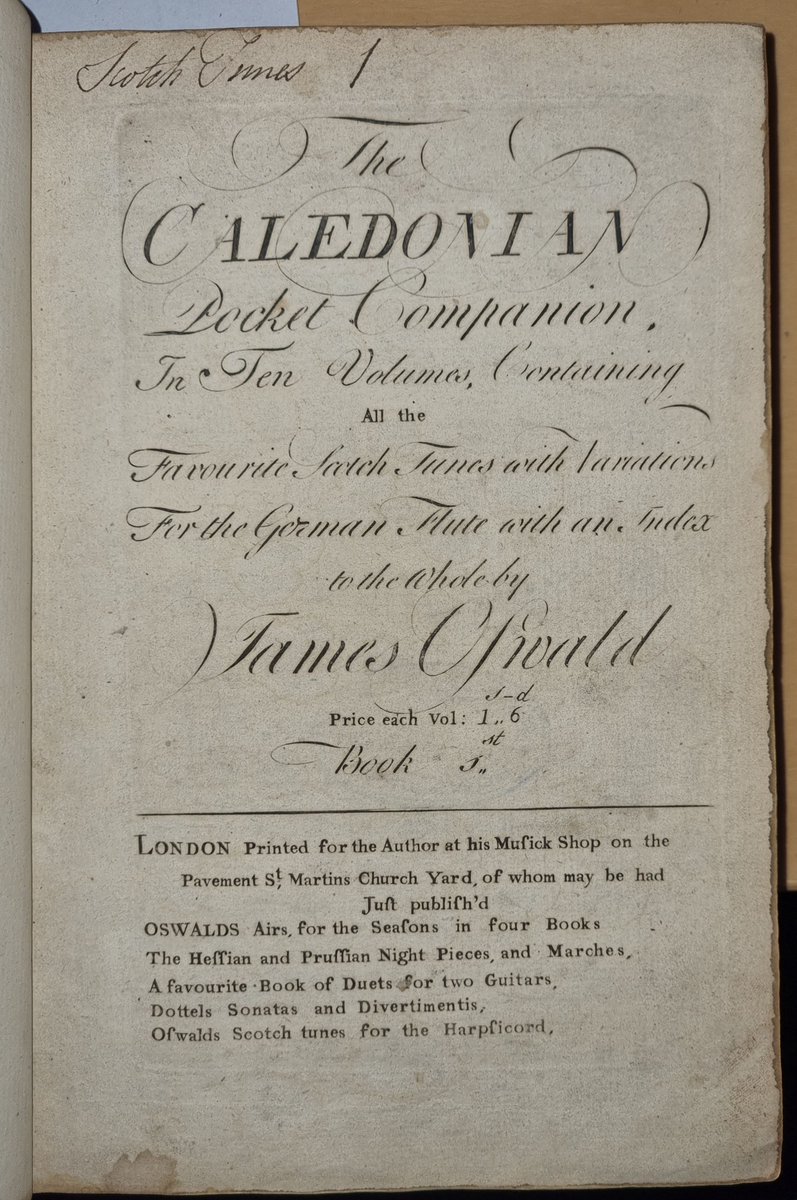 Scotch Tunes 1
The
CALEDONIAN
Pocket Companion,
In Ten Volumes, Containing
All the
Favourite Scotch Tunes with Variations
For the German Flute with an Index
to the Whole by
James Oſwald
s-d
Price each Vol: 1,, 6
Book 1,,st
LONDON Printed for the Author at his Muſick Shop on the
Pavement St, Martins Church Yard, of whom may be had
Juſt publiſh'd
OSWALDS Airs, for the Seaſons in four Books
The Heſſian and Pruſſian Night Pieces, and Marches,
A favourite Book of Duets for two Guitars,
Dottels Sonatas and Divertimentis,
Oſwalds Scotch tunes for the Harpſicord,